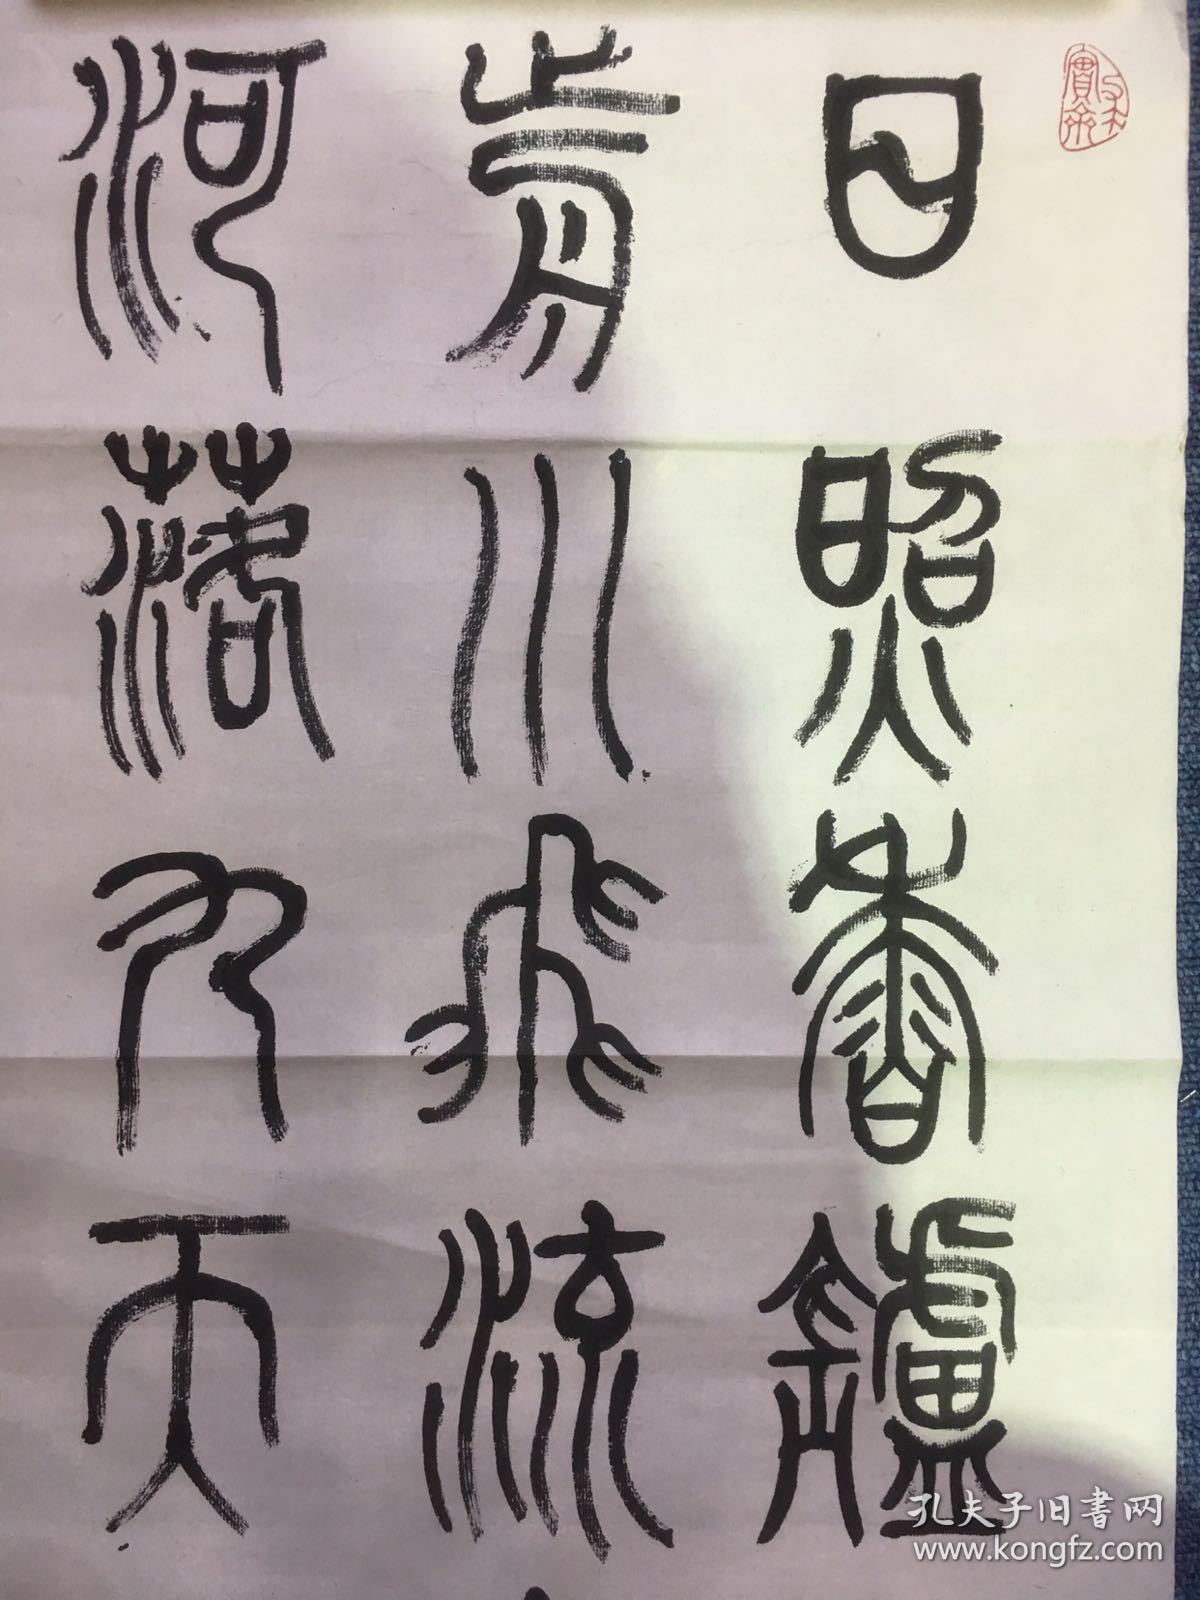 日照香鑪
前川飛流
河落九天
孔夫子旧书网
www.kongfz.com